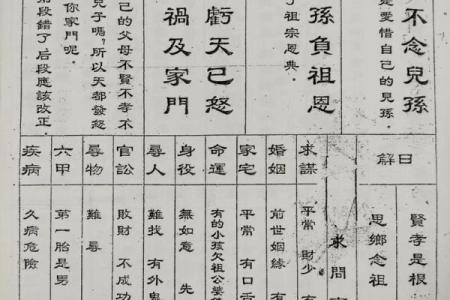 不念兒孫
是愛惜自己的兒孫。
孫負祖恩
了祖宗恩典。
虧天已怒
禍及家門
己的父母不賢不孝不
兒子嗎,所以天都發怒
你家門呢。
前段錯了后段應該改正。
日解
賢孝是根
思鄉念祖
求問
求謀
平常 財少 有
婚姻
前世姻緣 有
家宅
平常 有口舌
命運
有的小孩欠祖公婆
身役
無如意 先
尋人
難找 有外鬼
官訟
敗財 不成功
尋物
難尋
六甲
第一胎是男
疾病
久病危險